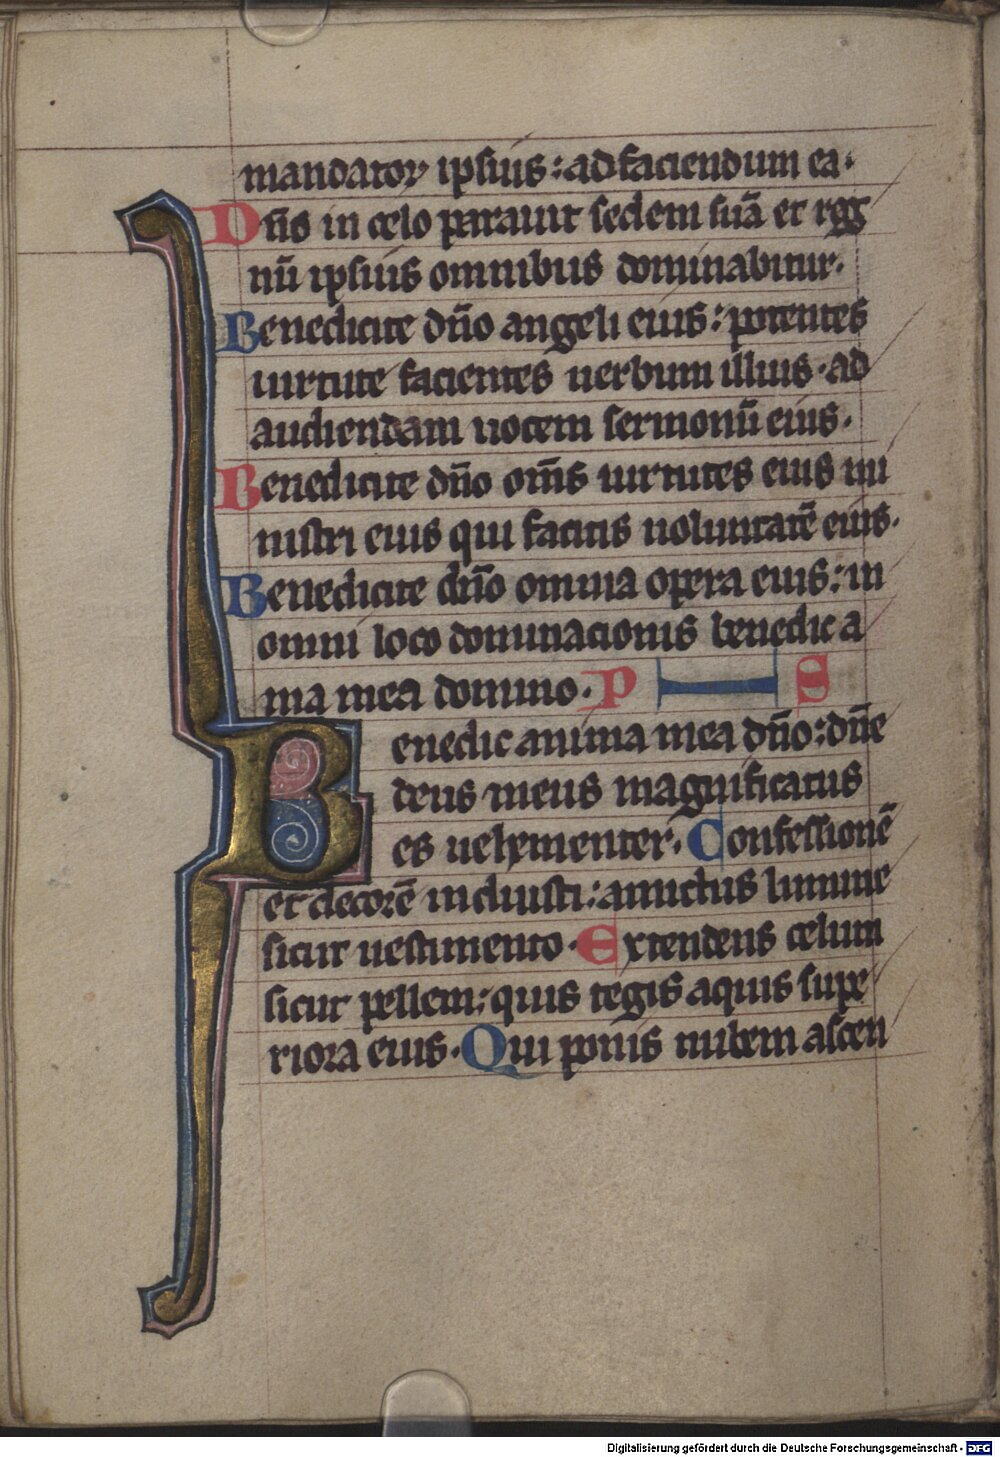 mandatoꝝ ipsius: ad faciendum ea.
Dn̄s in celo parauit sedem suā et reg
nū ipsius omnibus dominabitur.
Benedicite dn̄o angeli eius: potentes
uirtute facientes uerbum illius. ad
audiendam uocem sermonū eius.
Benedicite dn̄o om̄s uirtutes eius mi
nistri eius qui facitis uoluntatē eius.
Benedicite dn̄o omnia opera eius: in
omni loco dominacionis benedic a
ma mea domino. P S
Benedic anima mea dn̄o: dn̄e
deus meus magnificatus
es uehementer. Confessionē
et decorē induisti: amictus lumine
sicut uestimento. Extendens celum
sicut pellem: quis tegis aquis supe
riora eius. Qui ponis nubem ascen
Digitalisierung gefördert durch die Deutsche Forschungsgemeinschaft - DFG